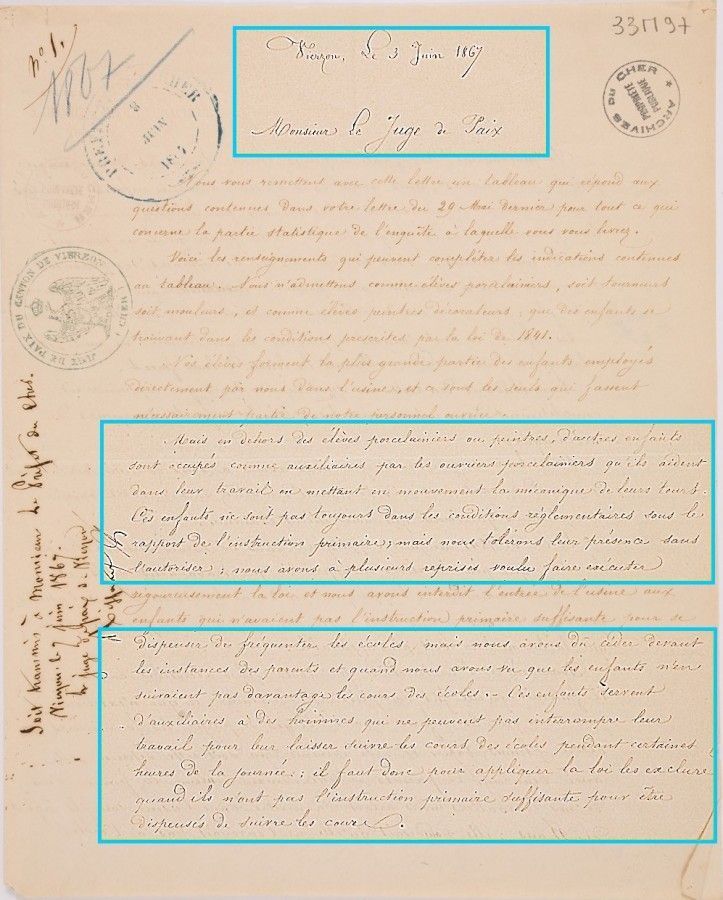 33M97
N° 1.
1867
Vierzon, Le 3 Juin 1867
ARCHIVES DU CHER
PROPRIÉTÉ PUBLIQUE
8
JUIN
Monsieur Le Juge de Paix
Nous vous remettons avec cette lettre un tableau qui répond aux
questions contenues dans votre lettre du 29 Mai dernier pour tout ce qui
concerne la partie statistique de l'enquête à laquelle vous vous livrez.
Voici les renseignements qui peuvent compléter les indications contenues
au tableau. Nous n'admettons comme élèves porcelainiers, soit tourneurs
soit mouleurs, et comme élèves peintres décorateurs, que des enfants se
trouvant dans les conditions prescrites par la loi de 1841.
JUGE DE PAIX DU CANTON DE VIERZON (CHER)
Nos élèves forment la plus grande partie des enfants employés
directement par nous dans l'usine, et ce sont les seuls qui fassent
nécessairement partie de notre personnel ouvrier.
Mais en dehors des élèves porcelainiers ou peintres, d'autres enfants
sont occupés comme auxiliaires par les ouvriers porcelainiers qu'ils aident
dans leur travail en mettant en mouvement la mécanique de leurs tours.
Ces enfants ne sont pas toujours dans les conditions réglementaires sous le
rapport de l'instruction primaire; mais nous tolérons leur présence sans
l'autoriser; nous avons à plusieurs reprises voulu faire exécuter
rigoureusement la loi et nous avons interdit l'entrée de l'usine aux
enfants qui n'avaient pas l'instruction primaire suffisante pour se
dispenser de fréquenter les écoles, mais nous avons dû céder devant
les instances des parents et quand nous avons vu que les enfants n'en
suivaient pas davantage les cours des écoles. - Ces enfants servent
d'auxiliaires à des hommes qui ne peuvent pas interrompre leur
travail pour leur laisser suivre les cours des écoles pendant certaines
heures de la journée.; il faut donc pour appliquer la loi les exclure
quand ils n'ont pas l'instruction primaire suffisante pour être
dispensés de suivre les cours.
Soit transmis à Monsieur Le Préfet du Cher.
Vierzon, le 7 Juin 1867.
Le juge de paix de Vierzon